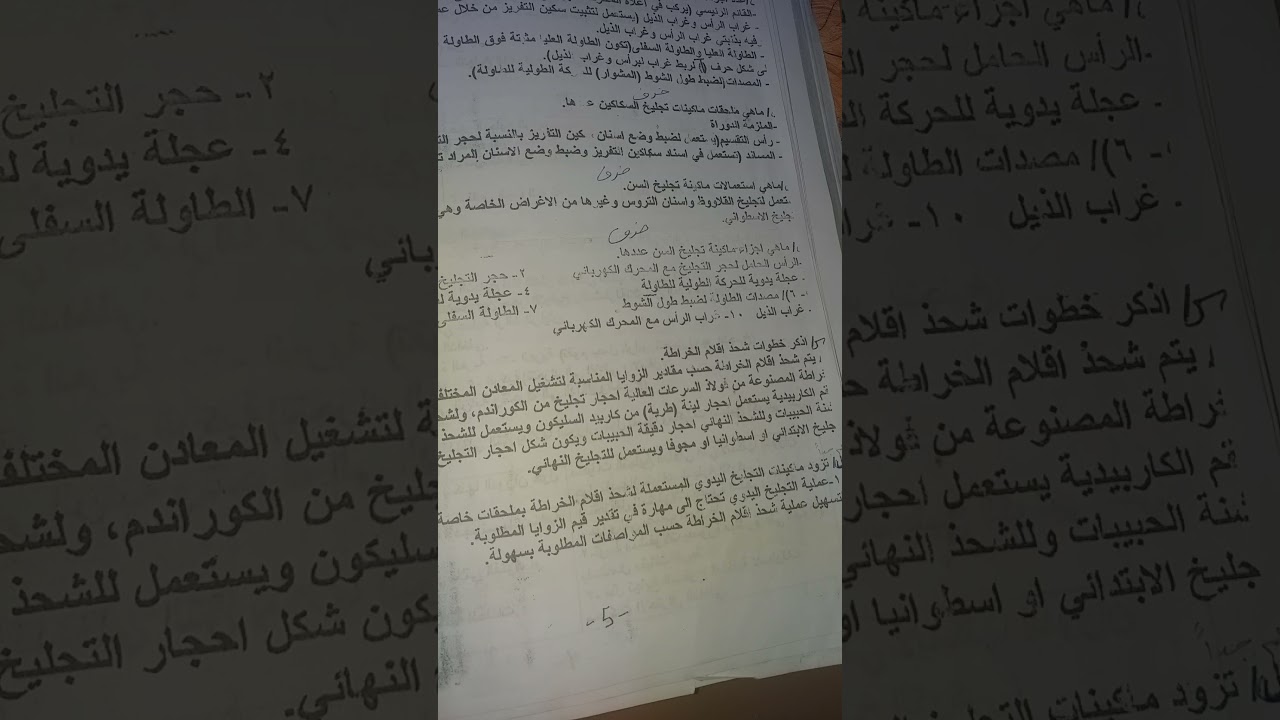 -القائم الرئيسي (يركب في اعلاه
- غراب الرأس وغراب الذيل (يستعمل لتثبيت سكين التفريز من خلال
فيه بذنبتي غراب الرأس وغراب الذيل.
- الطاولة العليا والطاولة السفلى(تكون الطاولة العليا مثبتة فوق الطاولة
شكل حرف لربط غراب الرأس وغراب الذيل).
- المصدات(لضبط طول الشوط (المشوار) للحركة الطولية للطاولة).
حذف
/ ماهي ملحقات ماكينات تجليخ السكاكين عددها.
-الملزمة الدوراة
- رأس التقسيم(يستعمل لضبط وضع اسنان سكين التفريز بالنسبة لحجر
- المساند (تستعمل في اسناد سكاكين التفريز وضبط وضع الاسنان المراد
حذف
/ماهي استعمالات ماكينة تجليخ السن.
تعمل لتجليخ القلاووظ واسنان التروس وغيرها من الاغراض الخاصة وهي
جليخ الاسطواني.
حذف
/ ماهي اجزاء ماكينة تجليخ السن عددها.
-الرأس الحامل لحجر التجليخ مع المحرك الكهربائي ٢- حجر التجليخ
- عجلة يدوية للحركة الطولية للطاولة ٤- عجلة يدوية
- ٦)/ مصدات الطاولة لضبط طول الشوط ٧- الطاولة السفلى
- غراب الذيل ١٠- غراب الرأس مع المحرك الكهربائي
س/ اذكر خطوات شحذ اقلام الخراطة.
يتم شحذ اقلام الخراطة حسب مقادير الزوايا المناسبة لتشغيل المعادن المختلفة
خراطة المصنوعة من فولاذ السرعات العالية احجار تجليخ من الكوراندم، ولشحذ
الكاربيدية يستعمل احجار لينة (طرية) من كاربيد السليكون ويستعمل للشحذ
خشنة الحبيبات وللشحذ النهائي احجار دقيقة الحبيبات ويكون شكل احجار التجليخ
جليخ الابتدائي او اسطوانيا او مجوفا ويستعمل للتجليخ النهائي.
/ تزود ماكينات التجليخ اليدوي المستعملة لشحذ اقلام الخراطة بملحقات خاصة
١-عملية التجليخ اليدوي تحتاج الى مهارة في تقدير قيم الزوايا المطلوبة.
تسهيل عملية شحذ اقلام الخراطة حسب المواصفات المطلوبة بسهولة.
-5-